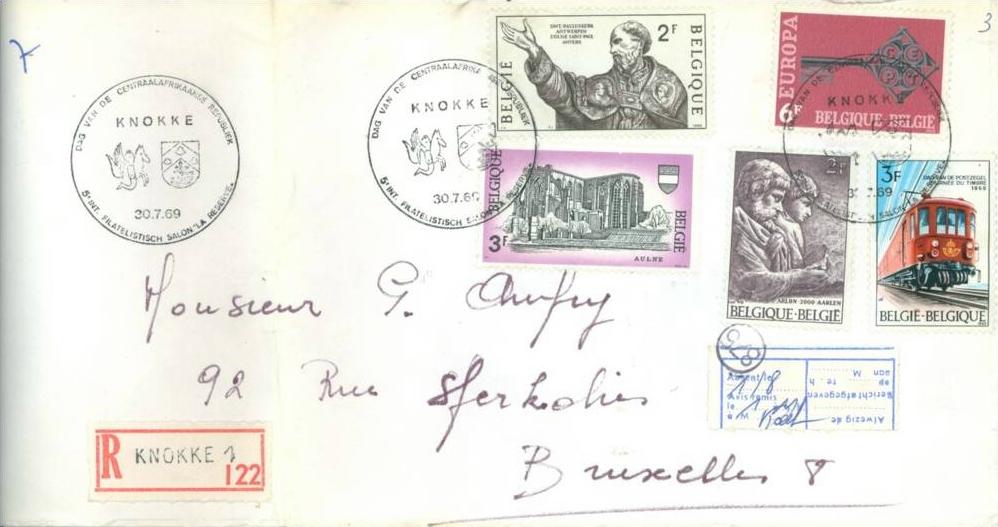 7
3
DAG VAN DE CENTRAALAFRIKAANSE REPUBLIEK
KNOKKE
30.7.69
5e INT. FILATELISTISCH SALON "LA RESERVE"
DAG VAN DE CENTRAALAFRIKAANSE REPUBLIEK
KNOKKE
30.7.69
5e INT. FILATELISTISCH SALON "LA RESERVE"
SINT-PAULUSKERK
ANTWERPEN
EGLISE SAINT-PAUL
ANVERS
2F
BELGIË
BELGIQUE
EUROPA
CEPT
6F
BELGIQUE-BELGIË
KNOKKE
30.7.69
BELGIQUE
BELGIË
3F
AULNE
2F
ARLON-2000 AARLEN
BELGIQUE-BELGIË
3F
DAG VAN DE POSTZEGEL
JOURNÉE DU TIMBRE
1969
BELGIË-BELGIQUE
Monsieur G.
92 Rue
Bruxelles 8
R KNOKKE 1
122
876
Absent le
1/8
Avis remis
le
à M
Afwezig de
Bericht afgegeven
op te h.
aan M